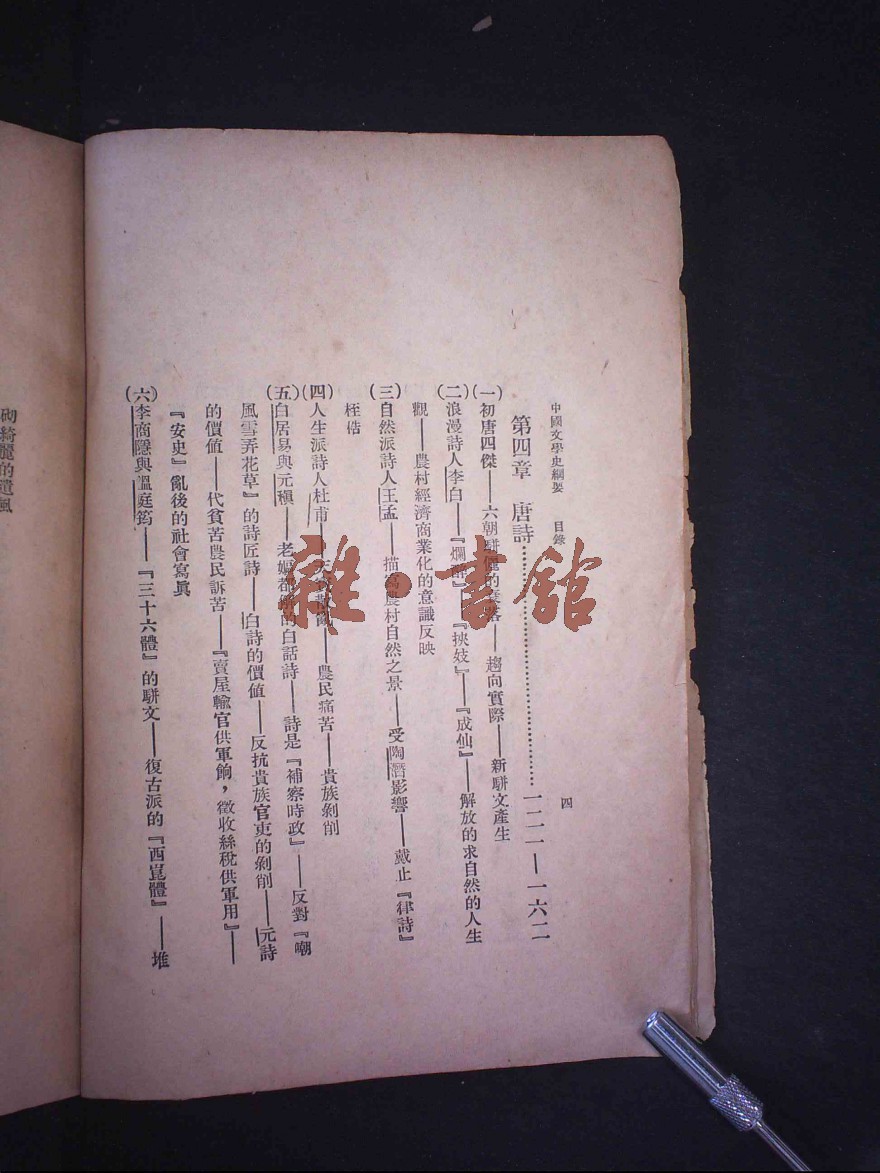 中國文學史綱要 目錄 四
第四章 唐詩……………………一二一—一六二
(一)初唐四傑——六朝駢儷的——趨向實際——新駢文產生
(二)浪漫詩人李白——『爛醉』——『挾妓』——『成仙』——解放的求自然的人生
觀——農村經濟商業化的意識反映
(三)自然派詩人王孟——描寫農村自然之景——受陶潛影響——戴上『律詩』
桎梏
(四)人生派詩人杜甫——農民痛苦——貴族剝削
(五)白居易與元稹——老嫗都解的白話詩——詩是『補察時政』——反對『嘲
風雪弄花草』的詩匠詩——白詩的價值——反抗貴族官吏的剝削——元詩
的價值——代貧苦農民訴苦——『賣屋輸官供軍餉，徵收絲稅供軍用』——
『安史』亂後的社會寫眞
(六)李商隱與溫庭筠——『三十六體』的駢文——復古派的『西崑體』——堆
砌綺麗的遺風
雜·書館